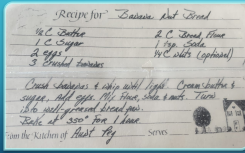 Recipe for Banana Nut Bread
½ C Butter
1 C Sugar
2 eggs
3 crushed bananas
2 C Bread Flour
1 tsp. Soda
¼ C nuts (optional)
Crush bananas & whip until light. Cream butter &
sugar, add eggs. Mix flour, soda & nuts. Turn
into well-greased bread pan.
Bake at 350° for 1 hour
From the Kitchen of Aunt Peg Serves